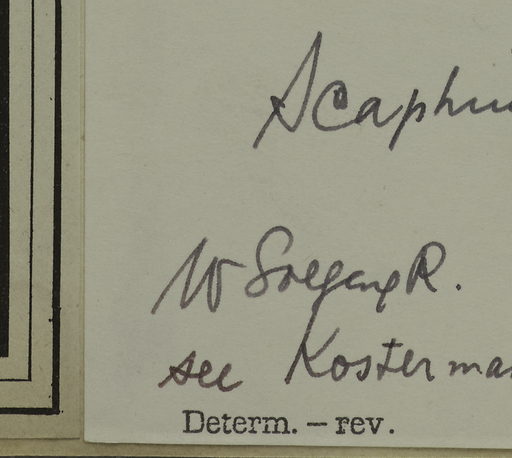 Scaphiu
W Soegeng R.
see Kosterma
Determ. — rev.